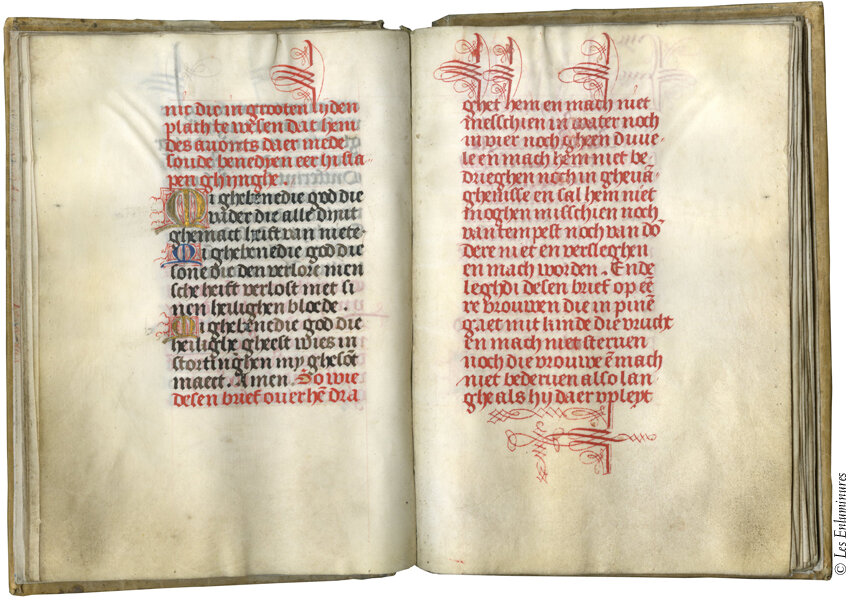 nic die in grooten lijden
plach te wesen dat hem
des auonts daer mede
soude benedyen eer hi sla
pen ghijnghe.
Mi ghebenedie god die
vader die alle dinc
ghemaect heift van niete.
Mi ghebenedie god die
sone die den verlorē men
sche heift verlost met si
nen heilighen bloede.
Mi ghebenedie god die
heilighe gheest wies in
stortinghen my ghesōt
maect. Amen. So wie
desen brief ouer hē dra
ghet hem en mach niet
messchien in water noch
in vier noch gheen duue
le en mach hem niet be
drieghen noch in gheuā
ghenisse en sal hem niet
moghen misschien noch
van tempest noch van dō
dere niet en versleghen
en mach worden. Ende
leghdi desen brief op eē
re vrouwen die in pinē
gaet mit kinde die vrucht
en mach niet steruen
noch die vrouwe ē mach
niet bederuen also lan
ghe als hij daer vpleyt
© Les Enluminures